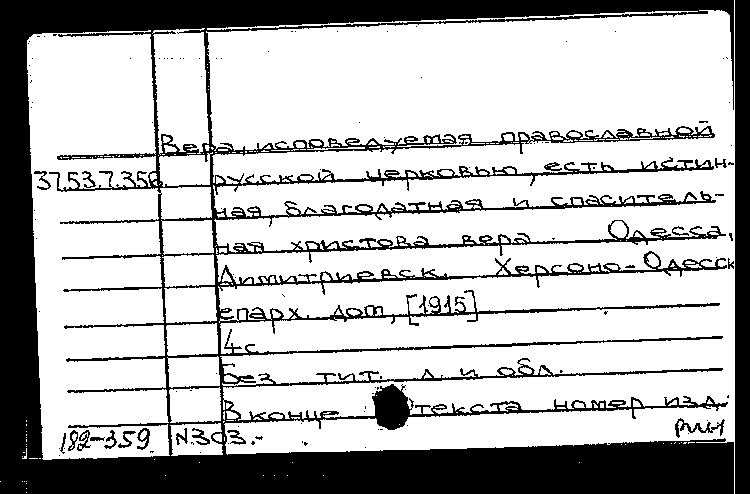 Вера, исповедуемая православной
37.53.7.356. русской церковью, есть истин-
ная, благодатная и спаситель-
ная христова вера. Одесса,
Димитриевск. Херсоно-Одесск
епарх. дом, [1915]
4 с.
Без тит. л. и обл.
В конце текста номер изд.
182-359 N303.-